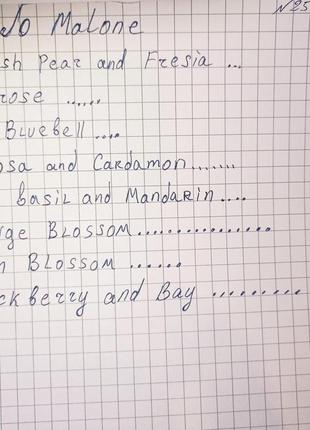 №25
Jo Malone
sh Pear and Fresia ...
rose ......
Bluebell ....
osa and Cardamon .......
basil and Mandarin ....
ge Blossom ................
Blossom ......
ckberry and Bay ..........